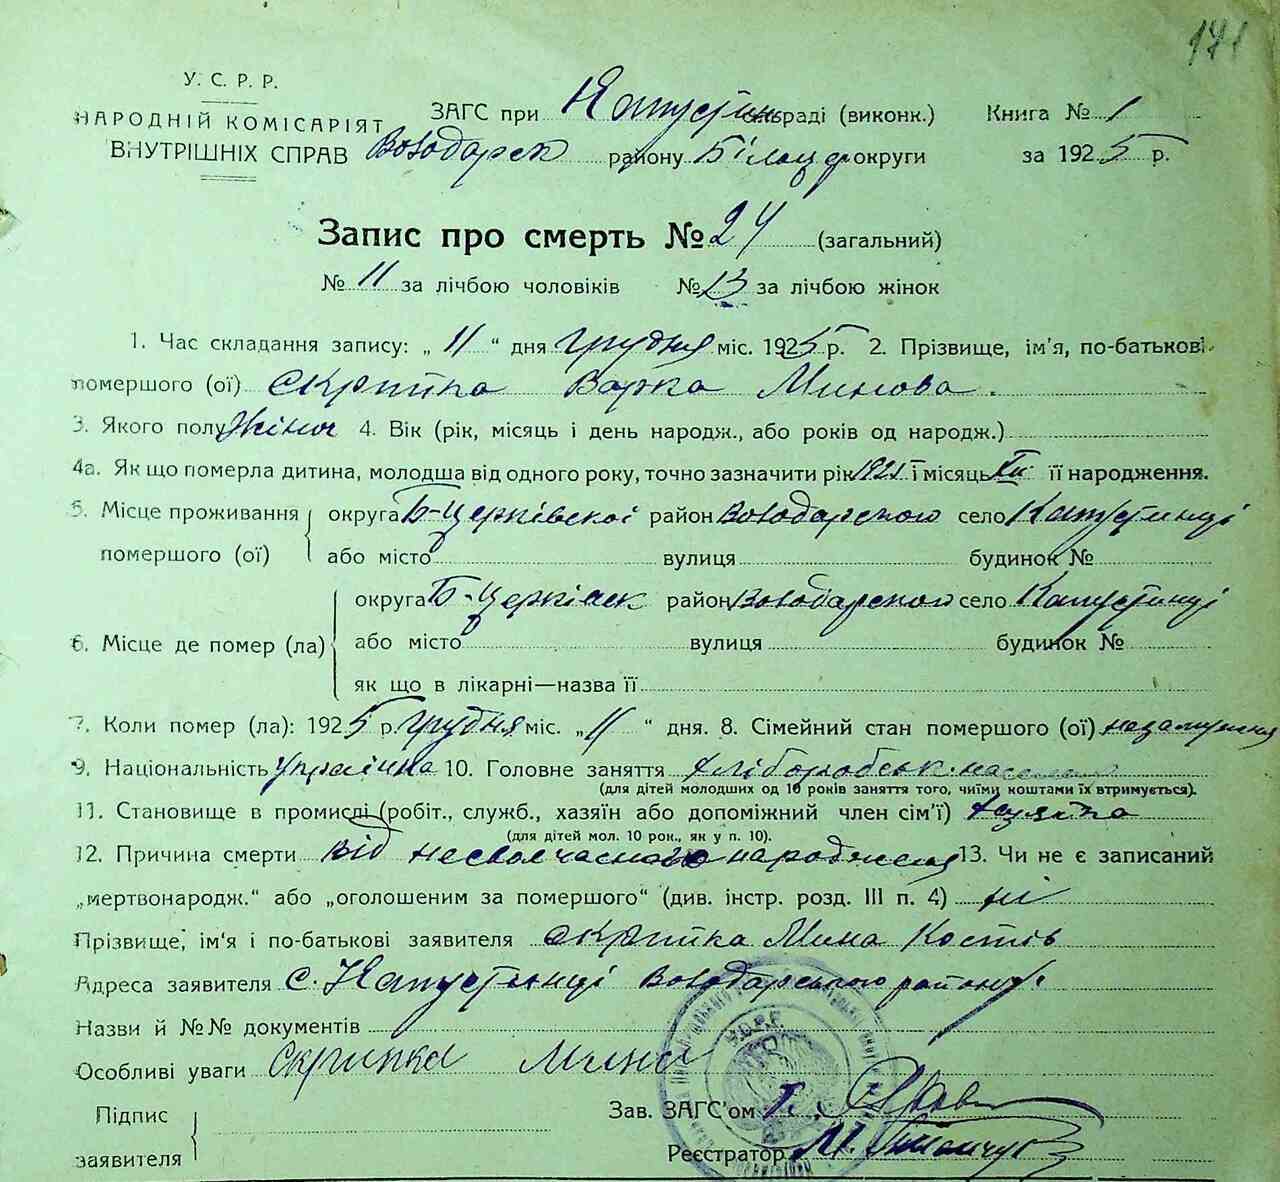 171
У. С. Р. Р.
НАРОДНІЙ КОМІСАРІЯТ
ВНУТРІШНІХ СПРАВ
ЗАГС при Капустин сільраді (виконк.) Книга № 1
Володарск району Білоцер округи за 1925 р.
Запис про смерть № 24 (загальний)
№ 11 за лічбою чоловіків № 13 за лічбою жінок
1. Час складання запису: „ 11 “ дня грудня міс. 1925 р. 2. Прізвище, ім'я, по-батькові
помершого (ої) Скрипка Варка Минова.
3. Якого полу жіноч 4. Вік (рік, місяць і день народж., або років од народж.)
4а. Як що померла дитина, молодша від одного року, точно зазначити рік 1925 і місяць XII її народження.
5. Місце проживання помершого (ої) округа Б-Церківської район Володарського село Капустинці
або місто вулиця будинок №
6. Місце де помер (ла) округа Б-Церківск район Володарського село Капустинці
або місто вулиця будинок №
як що в лікарні—назва її
7. Коли помер (ла): 1925 р. грудня міс. „ 11 “ дня. 8. Сімейний стан помершого (ої) незамужня
9. Національність Українка 10. Головне заняття хліборобськ.
(для дітей молодших од 10 років заняття того, чиїми коштами їх втримується).
11. Становище в промислі (робіт., служб., хазяїн або допоміжний член сім'ї)
(для дітей мол. 10 рок., як у п. 10).
12. Причина смерти від несвоєчасного народження 13. Чи не є записаний
„мертвонародж.“ або „оголошеним за помершого“ (див. інстр. розд. III п. 4) ні
Прізвище, ім'я і по-батькові заявителя Скрипка Мина Костів
Адреса заявителя с. Капустинці Володарського району
Назви й №№ документів
Особливі уваги Скрипка Мина
Підпис заявителя
Зав. ЗАГС'ом
Реєстратор